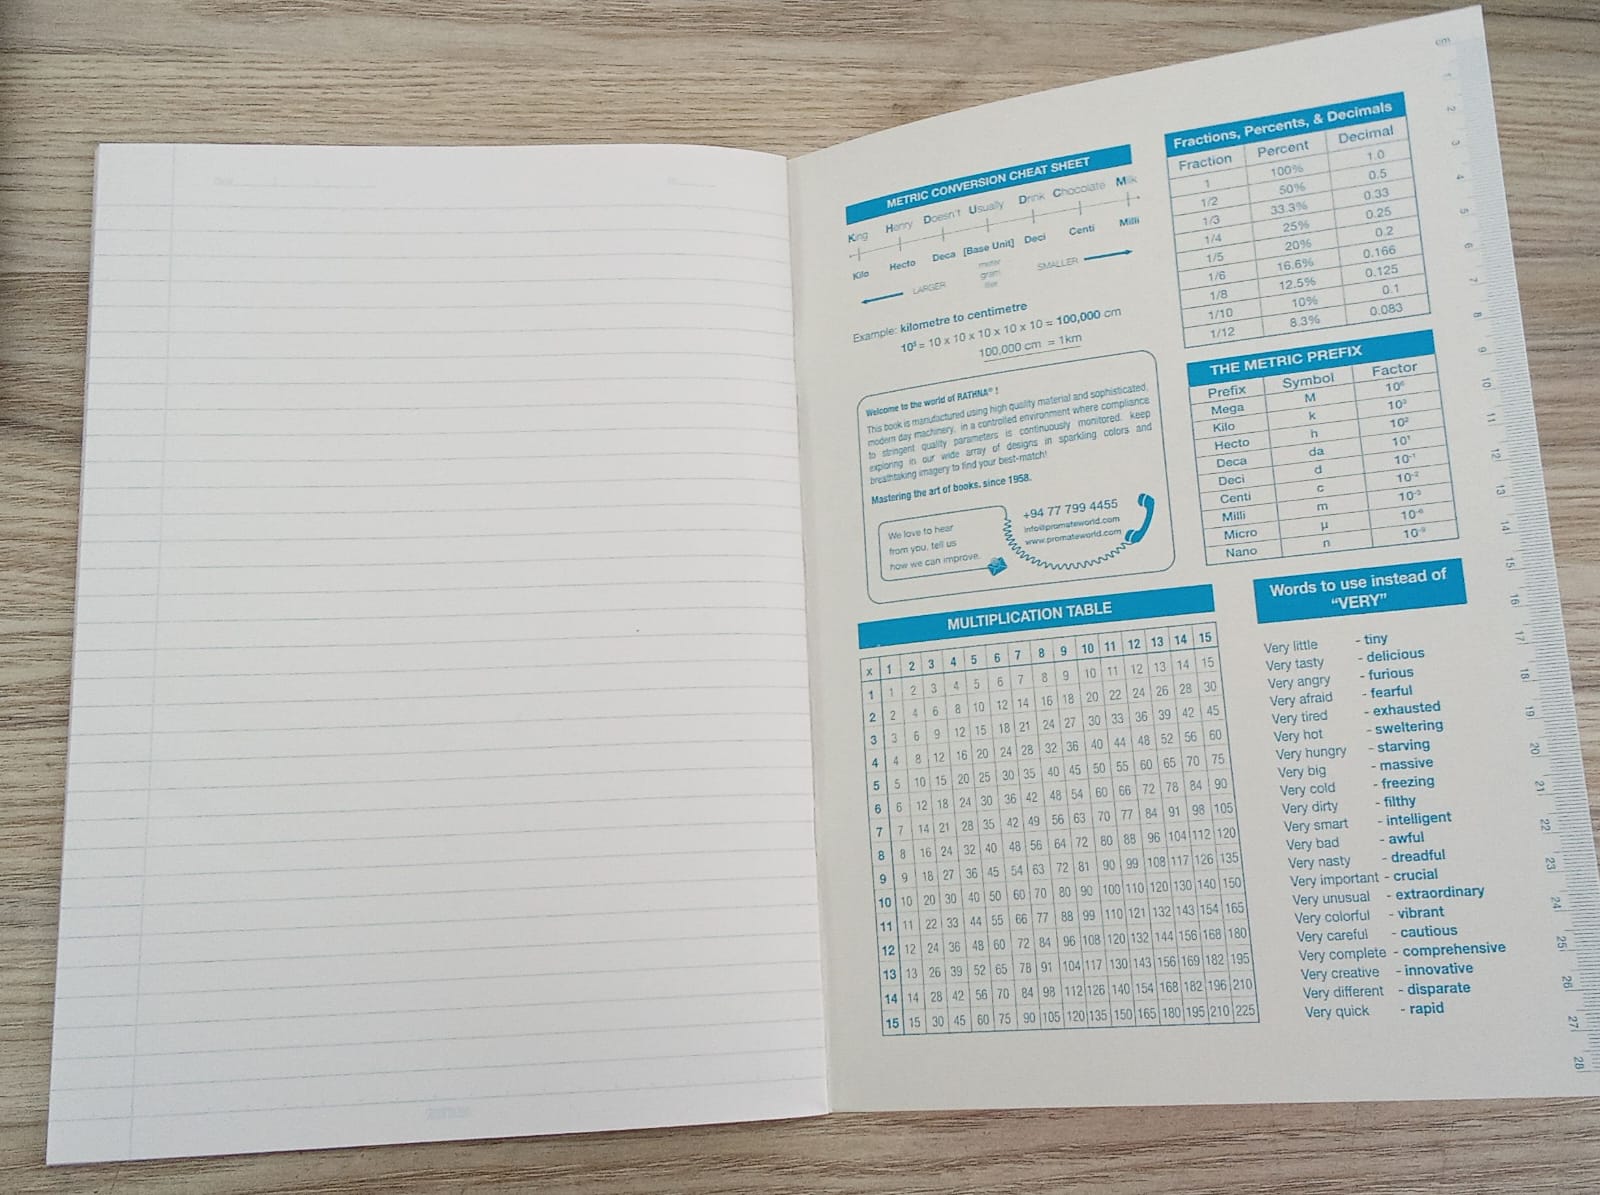 METRIC CONVERSION CHEAT SHEET
King Henry Doesn't Usually Drink Chocolate Milk
Kilo Hecto Deca [Base Unit] Deci Centi Milli
meter
gram
liter
LARGER SMALLER
Example: kilometre to centimetre
10⁵ = 10 x 10 x 10 x 10 x 10 = 100,000 cm
100,000 cm = 1km
Welcome to the world of RATHNA® !
This book is manufactured using high quality material and sophisticated,
modern day machinery, in a controlled environment where compliance
to stringent quality parameters is continuously monitored. keep
exploring in our wide array of designs in sparkling colors and
breathtaking imagery to find your best-match!
Mastering the art of books, since 1958.
We love to hear
from you, tell us
how we can improve.
+94 77 799 4455
info@promateworld.com
www.promateworld.com
MULTIPLICATION TABLE
x 1 2 3 4 5 6 7 8 9 10 11 12 13 14 15
1 1 2 3 4 5 6 7 8 9 10 11 12 13 14 15
2 2 4 6 8 10 12 14 16 18 20 22 24 26 28 30
3 3 6 9 12 15 18 21 24 27 30 33 36 39 42 45
4 4 8 12 16 20 24 28 32 36 40 44 48 52 56 60
5 5 10 15 20 25 30 35 40 45 50 55 60 65 70 75
6 6 12 18 24 30 36 42 48 54 60 66 72 78 84 90
7 7 14 21 28 35 42 49 56 63 70 77 84 91 98 105
8 8 16 24 32 40 48 56 64 72 80 88 96 104 112 120
9 9 18 27 36 45 54 63 72 81 90 99 108 117 126 135
10 10 20 30 40 50 60 70 80 90 100 110 120 130 140 150
11 11 22 33 44 55 66 77 88 99 110 121 132 143 154 165
12 12 24 36 48 60 72 84 96 108 120 132 144 156 168 180
13 13 26 39 52 65 78 91 104 117 130 143 156 169 182 195
14 14 28 42 56 70 84 98 112 126 140 154 168 182 196 210
15 15 30 45 60 75 90 105 120 135 150 165 180 195 210 225
Fractions, Percents, & Decimals
Fraction Percent Decimal
1 100% 1.0
1/2 50% 0.5
1/3 33.3% 0.33
1/4 25% 0.25
1/5 20% 0.2
1/6 16.6% 0.166
1/8 12.5% 0.125
1/10 10% 0.1
1/12 8.3% 0.083
THE METRIC PREFIX
Prefix Symbol Factor
Mega M 10⁶
Kilo k 10³
Hecto h 10²
Deca da 10¹
Deci d 10⁻¹
Centi c 10⁻²
Milli m 10⁻³
Micro µ 10⁻⁶
Nano n 10⁻⁹
Words to use instead of
“VERY”
Very little - tiny
Very tasty - delicious
Very angry - furious
Very afraid - fearful
Very tired - exhausted
Very hot - sweltering
Very hungry - starving
Very big - massive
Very cold - freezing
Very dirty - filthy
Very smart - intelligent
Very bad - awful
Very nasty - dreadful
Very important - crucial
Very unusual - extraordinary
Very colorful - vibrant
Very careful - cautious
Very complete - comprehensive
Very creative - innovative
Very different - disparate
Very quick - rapid
cm
1
2
3
4
5
6
7
8
9
10
11
12
13
14
15
16
17
18
19
20
21
22
23
24
25
26
27
28